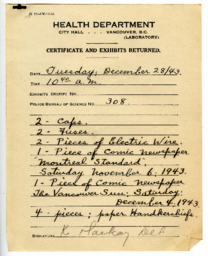 HEALTH DEPARTMENT
CITY HALL VANCOUVER, B.C.
(LABORATORY)
CERTIFICATE AND EXHIBITS RETURNED.
DATE Tuesday, December 28/43.
TIME 10 40 a.m.
EXHIBITS RECEIPT NO.
POLICE BUREAU OF SCIENCE NO. 308.
2 - Caps.
2 - Fuses.
2 - Pieces of Electric Wire.
1 - Piece of Comic Newspaper
Montreal Standard,
Saturday November 6, 1943.
1 - Piece of Comic Newspaper
The Vancouver Sun, Saturday,
December 4, 1943.
4 - pieces; paper Handkerchiefs.
SIGNATURE